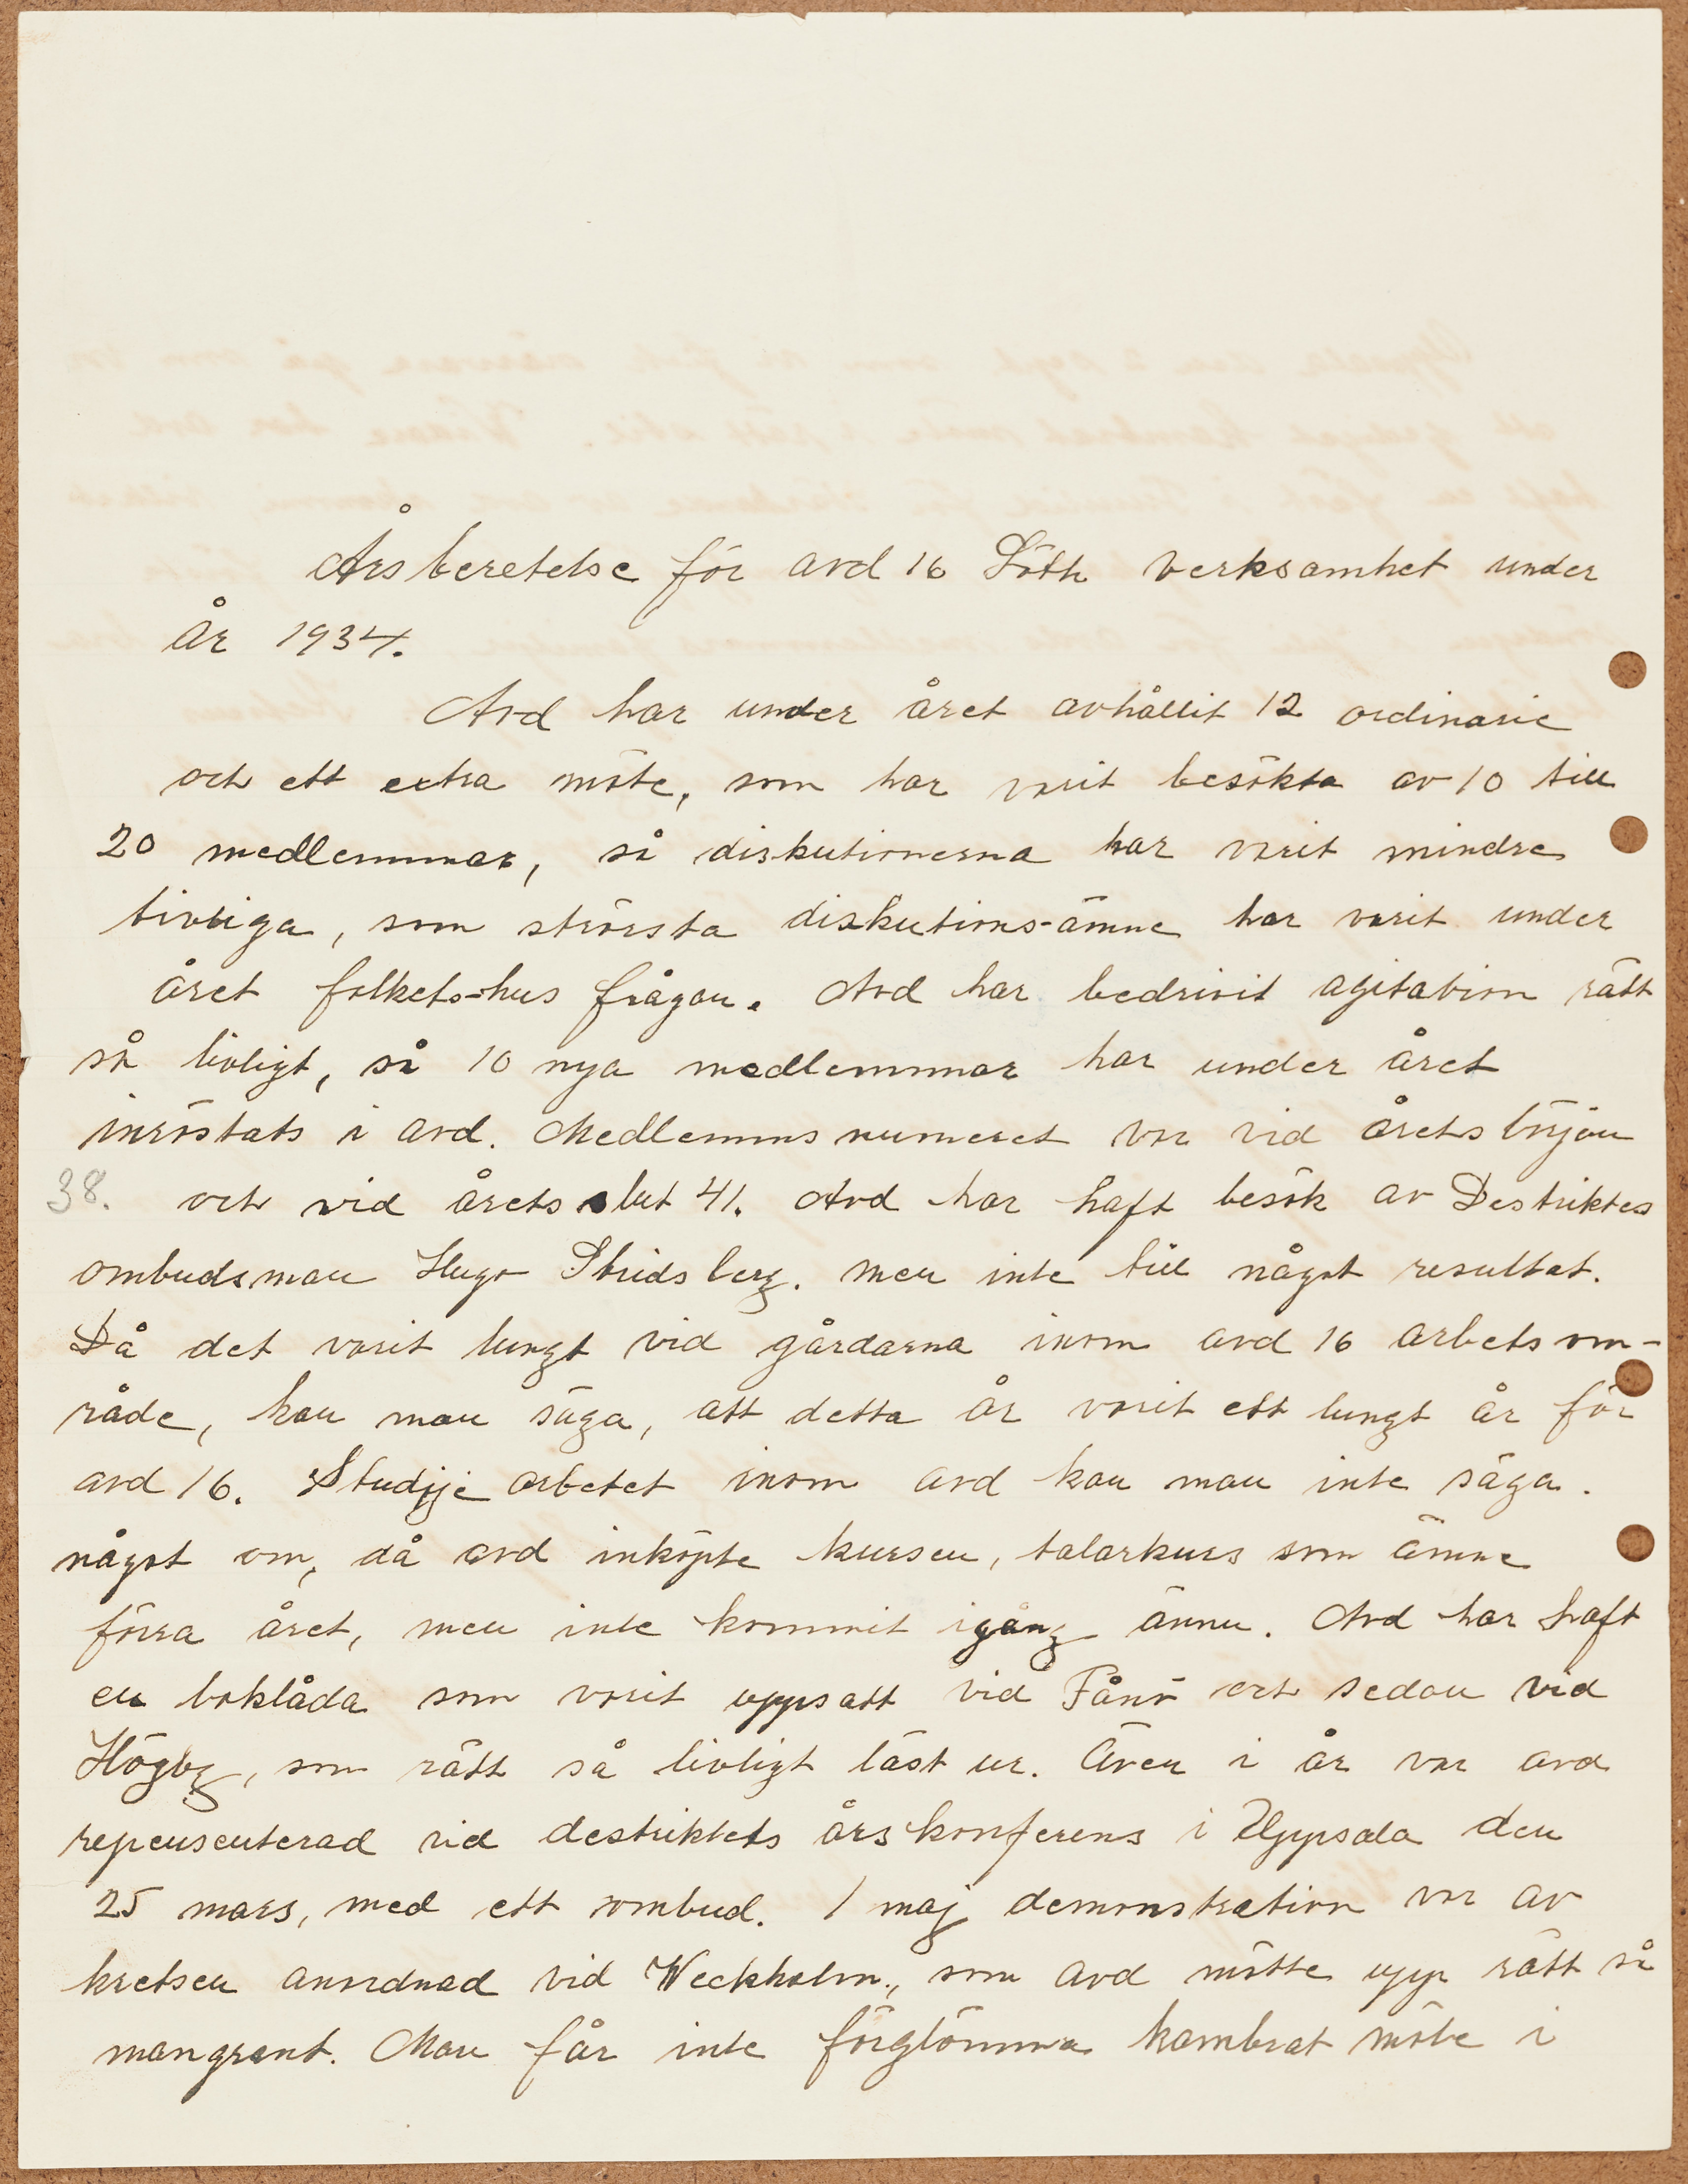 Årsberetelse för avd 16 Löth verksamhet under
år 1934.
Avd har under året avhållit 12 ordinarie
och ett extra möte, som har varit besökta av 10 till
20 medlemmar, så diskutionerna har varit mindre
livliga, som största diskutions-ämne har varit under
året folkets-hus frågan. Avd har bedrivit agitation rätt
så livligt, så 10 nya medlemmar har under året
inröstats i avd. Medlemmsnumeret var vid årets början
38. och vid årets slut 41. Avd har haft besök av Destriktes
ombudsman Hugo Stridsberg. men inte till något resultat.
Då det varit lungt vid gårdarna inom avd 16 arbetsom-
råde, kan man säga, att detta år varit ett lungt år för
avd 16. Studije arbetet inom avd kan man inte säga.
något om, då avd inköpte kursen, talarkurs som ämne
förra året, men inte kommit igång ännu. Avd har haft
en boklåda som varit uppsatt vid Fånö och sedan vid
Högby, som rätt så livligt läst ur. Även i år var avd
repensenterad vid destriktets årskonferens i Uppsala den
25 mars, med ett ombud. 1 maj demonstration var av
kretsen annordnad vid Weckholm., som avd mötte upp rätt så
mangrant. Man får inte förglömma kambrat möte i